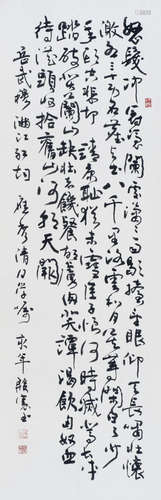 怒髮衝冠憑闌處瀟瀟雨歇抬望眼仰天長嘯壯懷
激烈三十功名塵與土八千里路雲和月莫等閒白了少
年頭空悲切靖康恥猶未雪臣子恨何時滅駕長車
踏破賀蘭山缺壯志飢餐胡虜肉笑談渴飲匈奴血
待從頭收拾舊山河朝天闕
岳武穆滿江紅詞